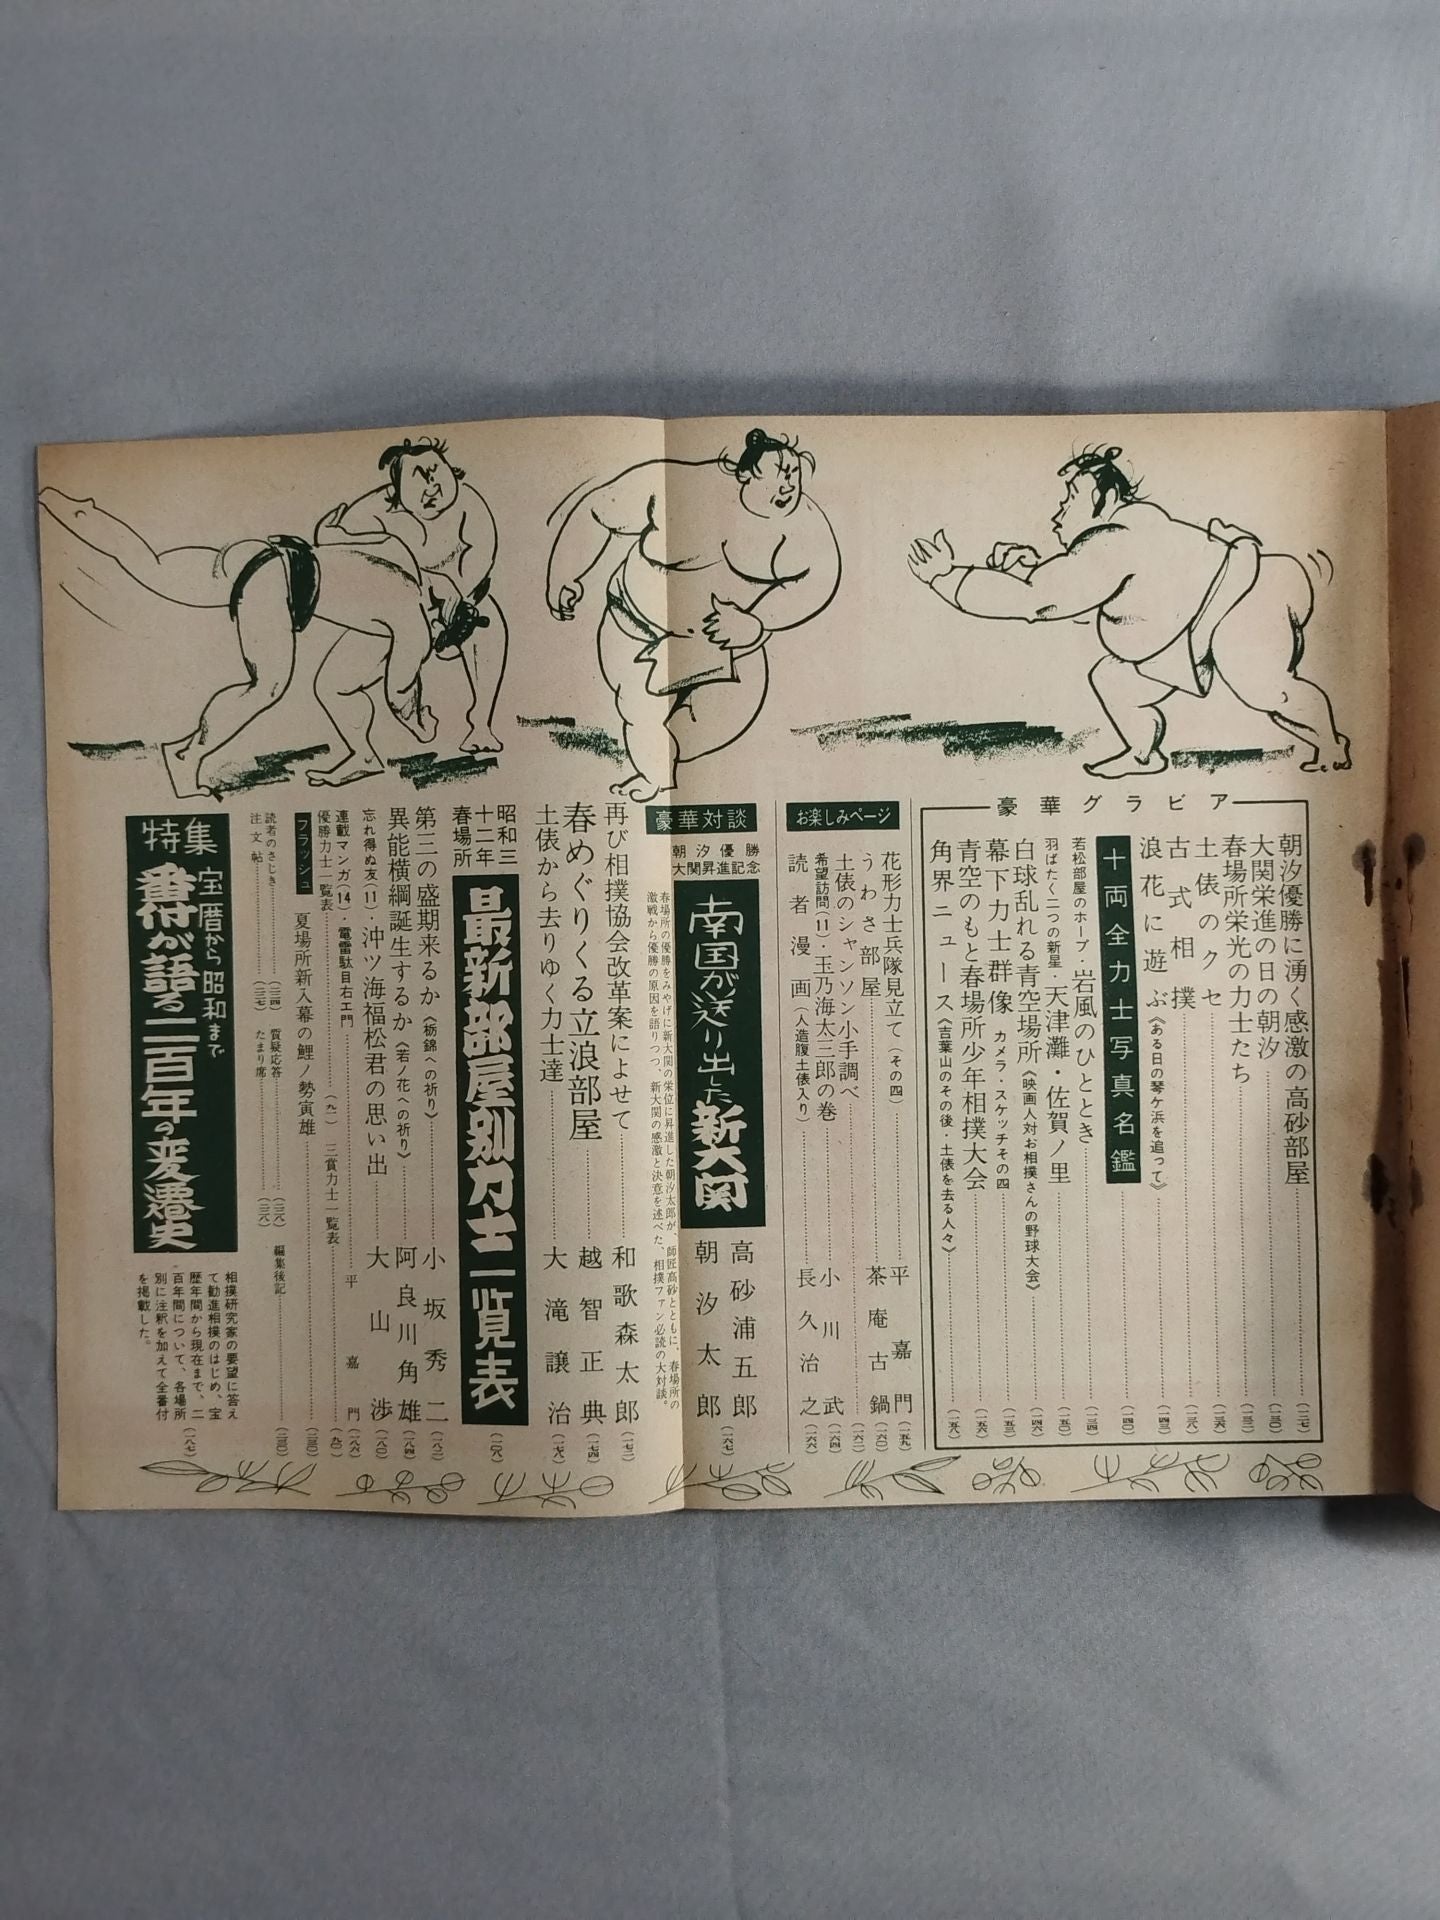 豪華グラビア
朝汐優勝に湧く感激の高砂部屋
大関栄進の日の朝汐
春場所栄光の力士たち
土俵のクセ
古式相撲
浪花に遊ぶ《ある日の琴ケ浜を追って》
十両全力士写真名鑑
若松部屋のホープ・岩風のひととき
羽ばたく二つの新星・天津灘・佐賀ノ里
白球乱れる青空場所《映画人対お相撲さんの野球大会》
幕下力士群像 カメラ・スケッチその四
青空のもと春場所少年相撲大会
角界ニュース《吉葉山のその後・土俵を去る人々》
お楽しみページ
花形力士兵隊見立て(その四) 平嘉門
うわさ部屋 茶庵古鍋
土俵のシャンソン小手調べ
希望訪問(11)・玉乃海太三郎の巻 小川武
読者漫画(人造腹土俵入り) 長久治之
豪華対談
朝汐優勝
大関昇進記念
南国が送り出した新大関
高砂浦五郎
朝汐太郎
春場所の優勝をみやげに新大関の栄位に昇進した朝汐太郎が、師匠高砂とともに、春場所の
激戦から優勝の原因を語りつつ、新大関の感激と決意を述べた、相撲ファン必読の大対談。
再び相撲協会改革案によせて 和歌森太郎
春めぐりくる立浪部屋 越智正典
土俵から去りゆく力士達 大滝譲治
昭和三
十二年
春場所
最新部屋別力士一覧表
第二の盛期来るか《栃錦への祈り》 小坂秀二
異能横綱誕生するか《若ノ花への祈り》 阿良川角雄
忘れ得ぬ友(11)・沖ツ海福松君の思い出 大山渉
連載マンガ(14)・電雷駄目右エ門 平嘉門
優勝力士一覧表 三賞力士一覧表
フラッシュ 夏場所新入幕の鯉ノ勢寅雄
読者のさじき 質疑応答 編集後記
注文帖 たまり席
特集
宝暦から昭和まで
番付が語る二百年の変遷史
相撲研究家の要望に答え
て勧進相撲のはじめ、宝
暦年間から現在まで、二
百年間について、各場所
別に注釈を加えて全番付
を掲載した。